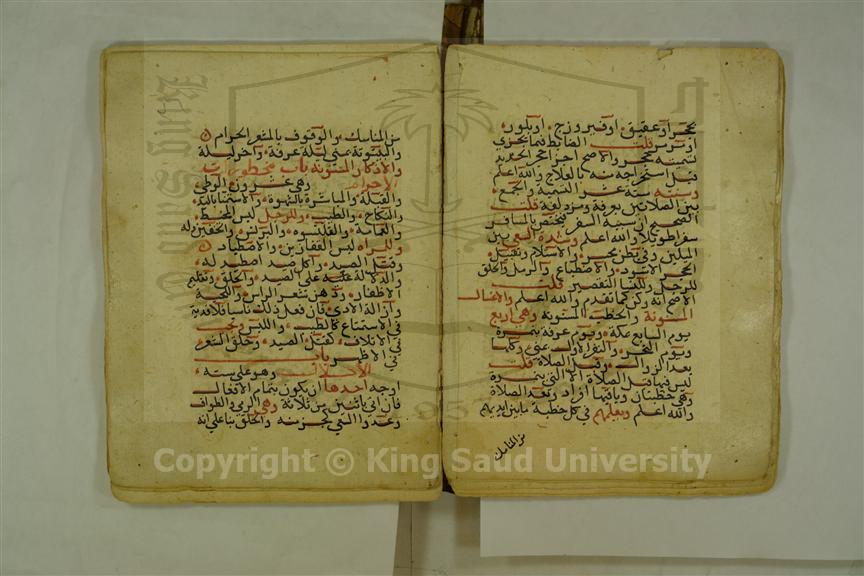 بحجر او عقيق او فيروزج او بلور
او نوس قلت الضابط فيما يجزي
تسميته بحجر والاصح اجزا حجر الحديد
قبل استخراجه منه بالعلاج والله اعلم
وسننه ستة عشر التسمية والجمع
بين الصلاتين بعرفة ومزدلفة قلت
الصحيح ان سببه السفر فيختص بالمسافر
سفرا طويلا والله اعلم وشدة السعي بين
الميلين وفي بطن محسر والاستلام وتقبيل
الحجر الاسود والاضطباع والرمل والحلق
للرجل وللنسا التقصير قلت
الاصح انه ركن كما تقدم والله اعلم والاغتسال
المسنونة والخطبة المسنونة وهي اربع
يوم السابع بمكة ويوم عرفة بنمرة
ويوم النحر والنفر الاول بمنى وكلها
بعد الزوال وقبل الصلاة قلت
ليس فيها قبل الصلاة الا التي بنمرة
وهي خطبتان وباقيها افراد وبعد الصلاة
والله اعلم ويعلمهم في كل خطبة ما بين ايديهم
من المناسك
من المناسك والوقوف بالمشعر الحرام
والبيتوتة بمنى ليلة عرفة وآخر ليلة
والاذكار المسنونة باب محظورات
الاحرام وهي عشرون الوطي
والقبلة والمباشرة بالشهوة والاستمنا باليد
والنكاح والطيب وللرجل لبس المخيط
والعمامة والقلنسوة والبرنس والخفين وله
وللمراه لبس القفازين والاصطياد
وقتل الصيد واكل صيد اصطيد له
والدلالة عليه على الصيد والحلق وتقليم
الاظفار ودهن شعر الراس واللحية
وازالة الاذى فان فعل ذلك ناسيا فلا فدية
في الاستمتاع كالطيب واللبس وتجب
في الاتلاف كقتل الصيد وحلق الشعر
في الاظهر باب
الاحلال وهو على ستة
اوجه احدها ان يكون بتمام الافعال
فان اتى باثنين من ثلاثة وهي الرمي والطواف
وعدوا السعي بجزمنه والحلق بنا على انه
Copyright © King Saud University